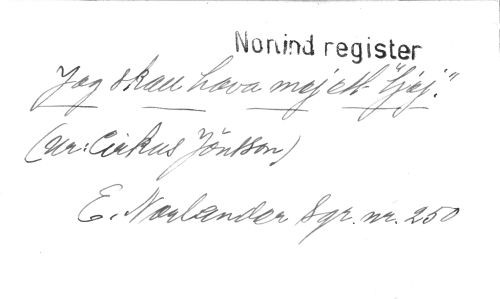 Norlind register
Jag skall hava mej ett "tjoj."
(ur: Cirkus Jönsson)
E. Norlander Sgr. nr. 250